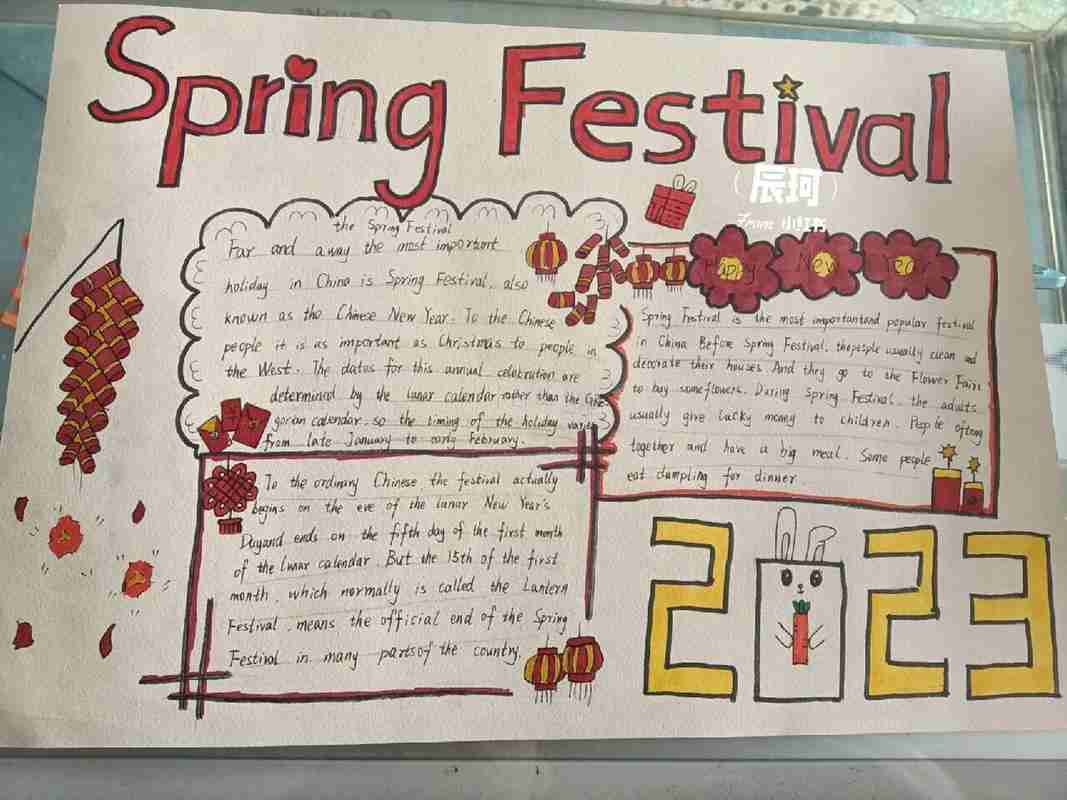 Spring Festival
(辰珂)
From 小红书
福
Happy New
the Spring Festival
Far and away the most important
holiday in China is Spring Festival, also
known as the Chinese New Year. To the Chinese
people it is as important as Christmas to people in
the West. The dates for this annual celebration are
determined by the lunar calendar rather than the Gre
gorian calendar, so the timing of the holiday varies
from late January to early February.
Spring Festival is the most importantand popular festival
in China Before Spring Festival, thepeople usually clean and
decorate their houses. And they go to the Flower Fairs
to buy someflowers. During Spring Festival, the adults
usually give lucky money to children. People ofteng
together and have a big meal. Some people
eat dumpling for dinner.
To the ordinary Chinese, the festival actually
begins on the eve of the lunar New Year's
Dayand ends on the fifth day of the first month
of the lunar calendar. But the 15th of the first
month, which normally is called the Lantern
Festival, means the official end of the Spring
Festival in many partsof the country.
2 23